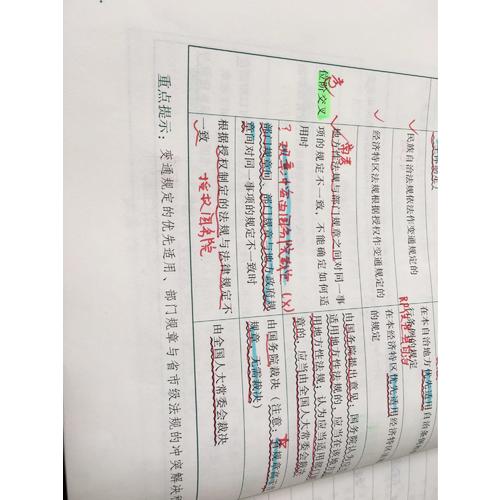 位阶交叉
民族自治法规依法作变通规定的
在本自治地方优先适用自治条例
行条例的规定
经济特区法规根据授权作变通规定的
在本经济特区优先适用经济特区
的规定
地方性法规与部门规章之间对同一事
项的规定不一致，不能确定如何适
用时
由国务院提出意见：国务院认为
适用地方性法规的，应当在该地
用地方性法规；认为应当适用部
章的，应当由全国人大常委会裁决
部门规章间、部门规章与地方政府规
章间对同一事项的规定不一致时
由国务院裁决（注意：
规章，无需裁决）
根据授权制定的法规与法律规定不
一致
授权国务院
由全国人大常委会裁决
重点提示：变通规定的优先适用、部门规章与省市级法规的冲突解决